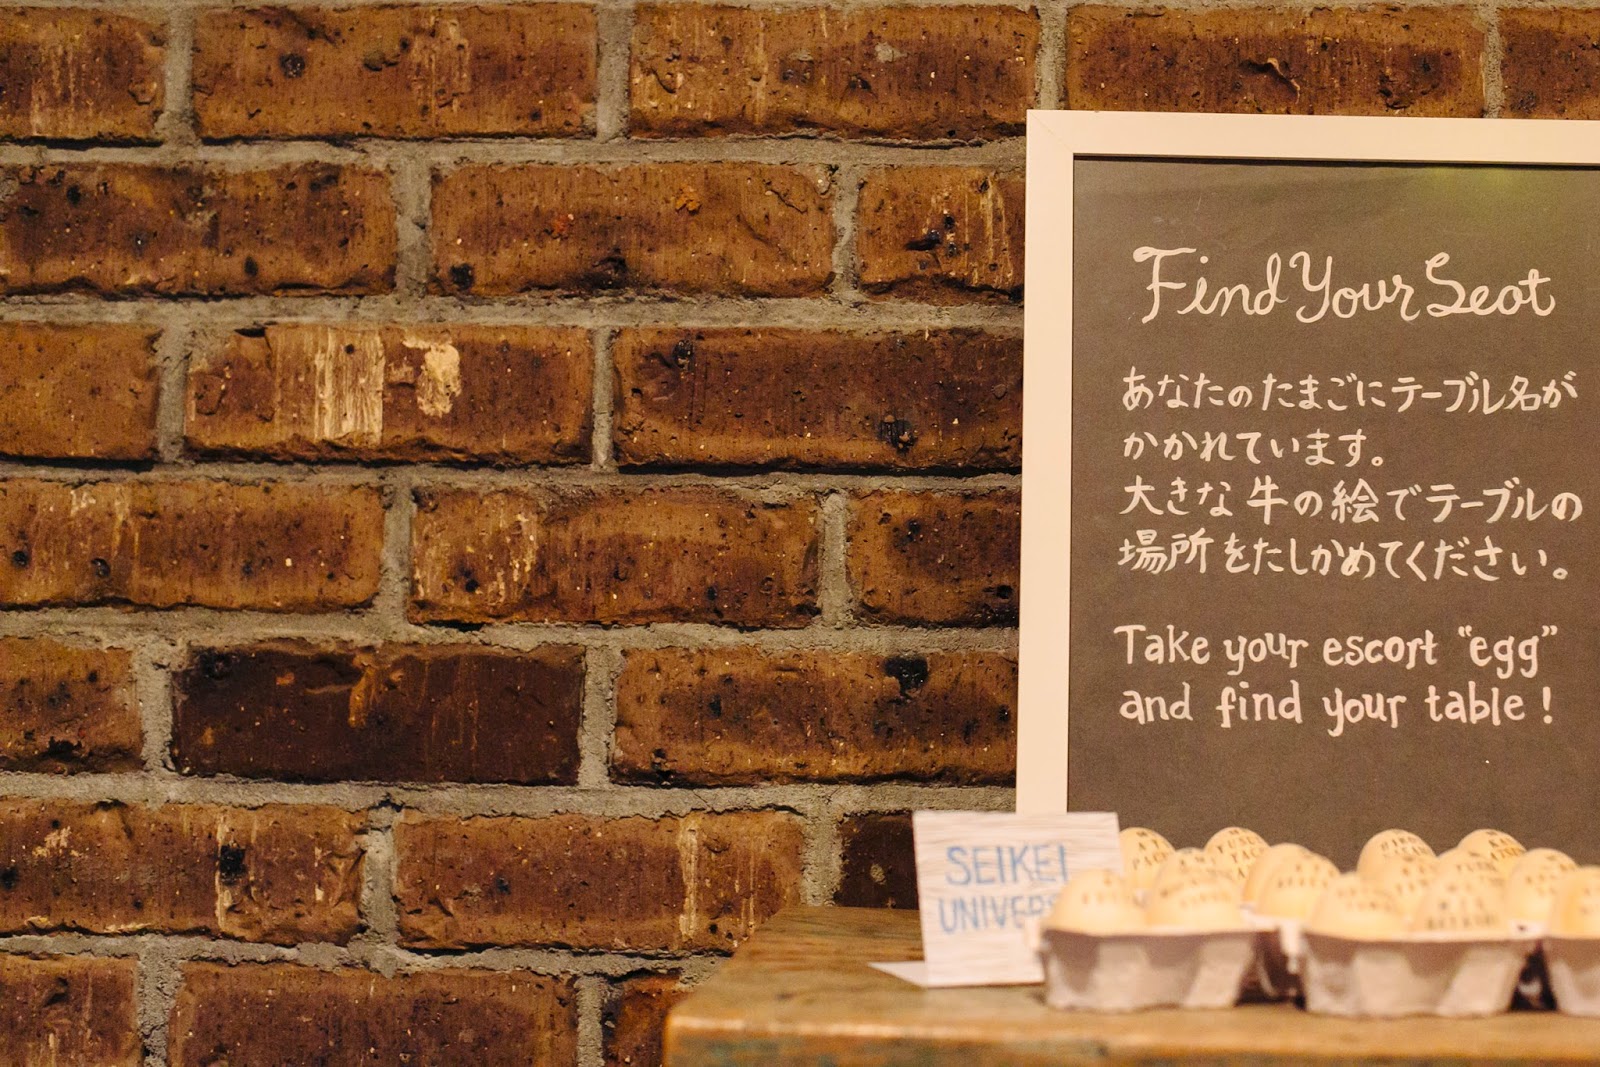 Find Your Seat
あなたのたまごにテーブル名が
かかれています。
大きな牛の絵でテーブルの
場所をたしかめてください。
Take your escort “egg”
and find your table!
SEIKEI